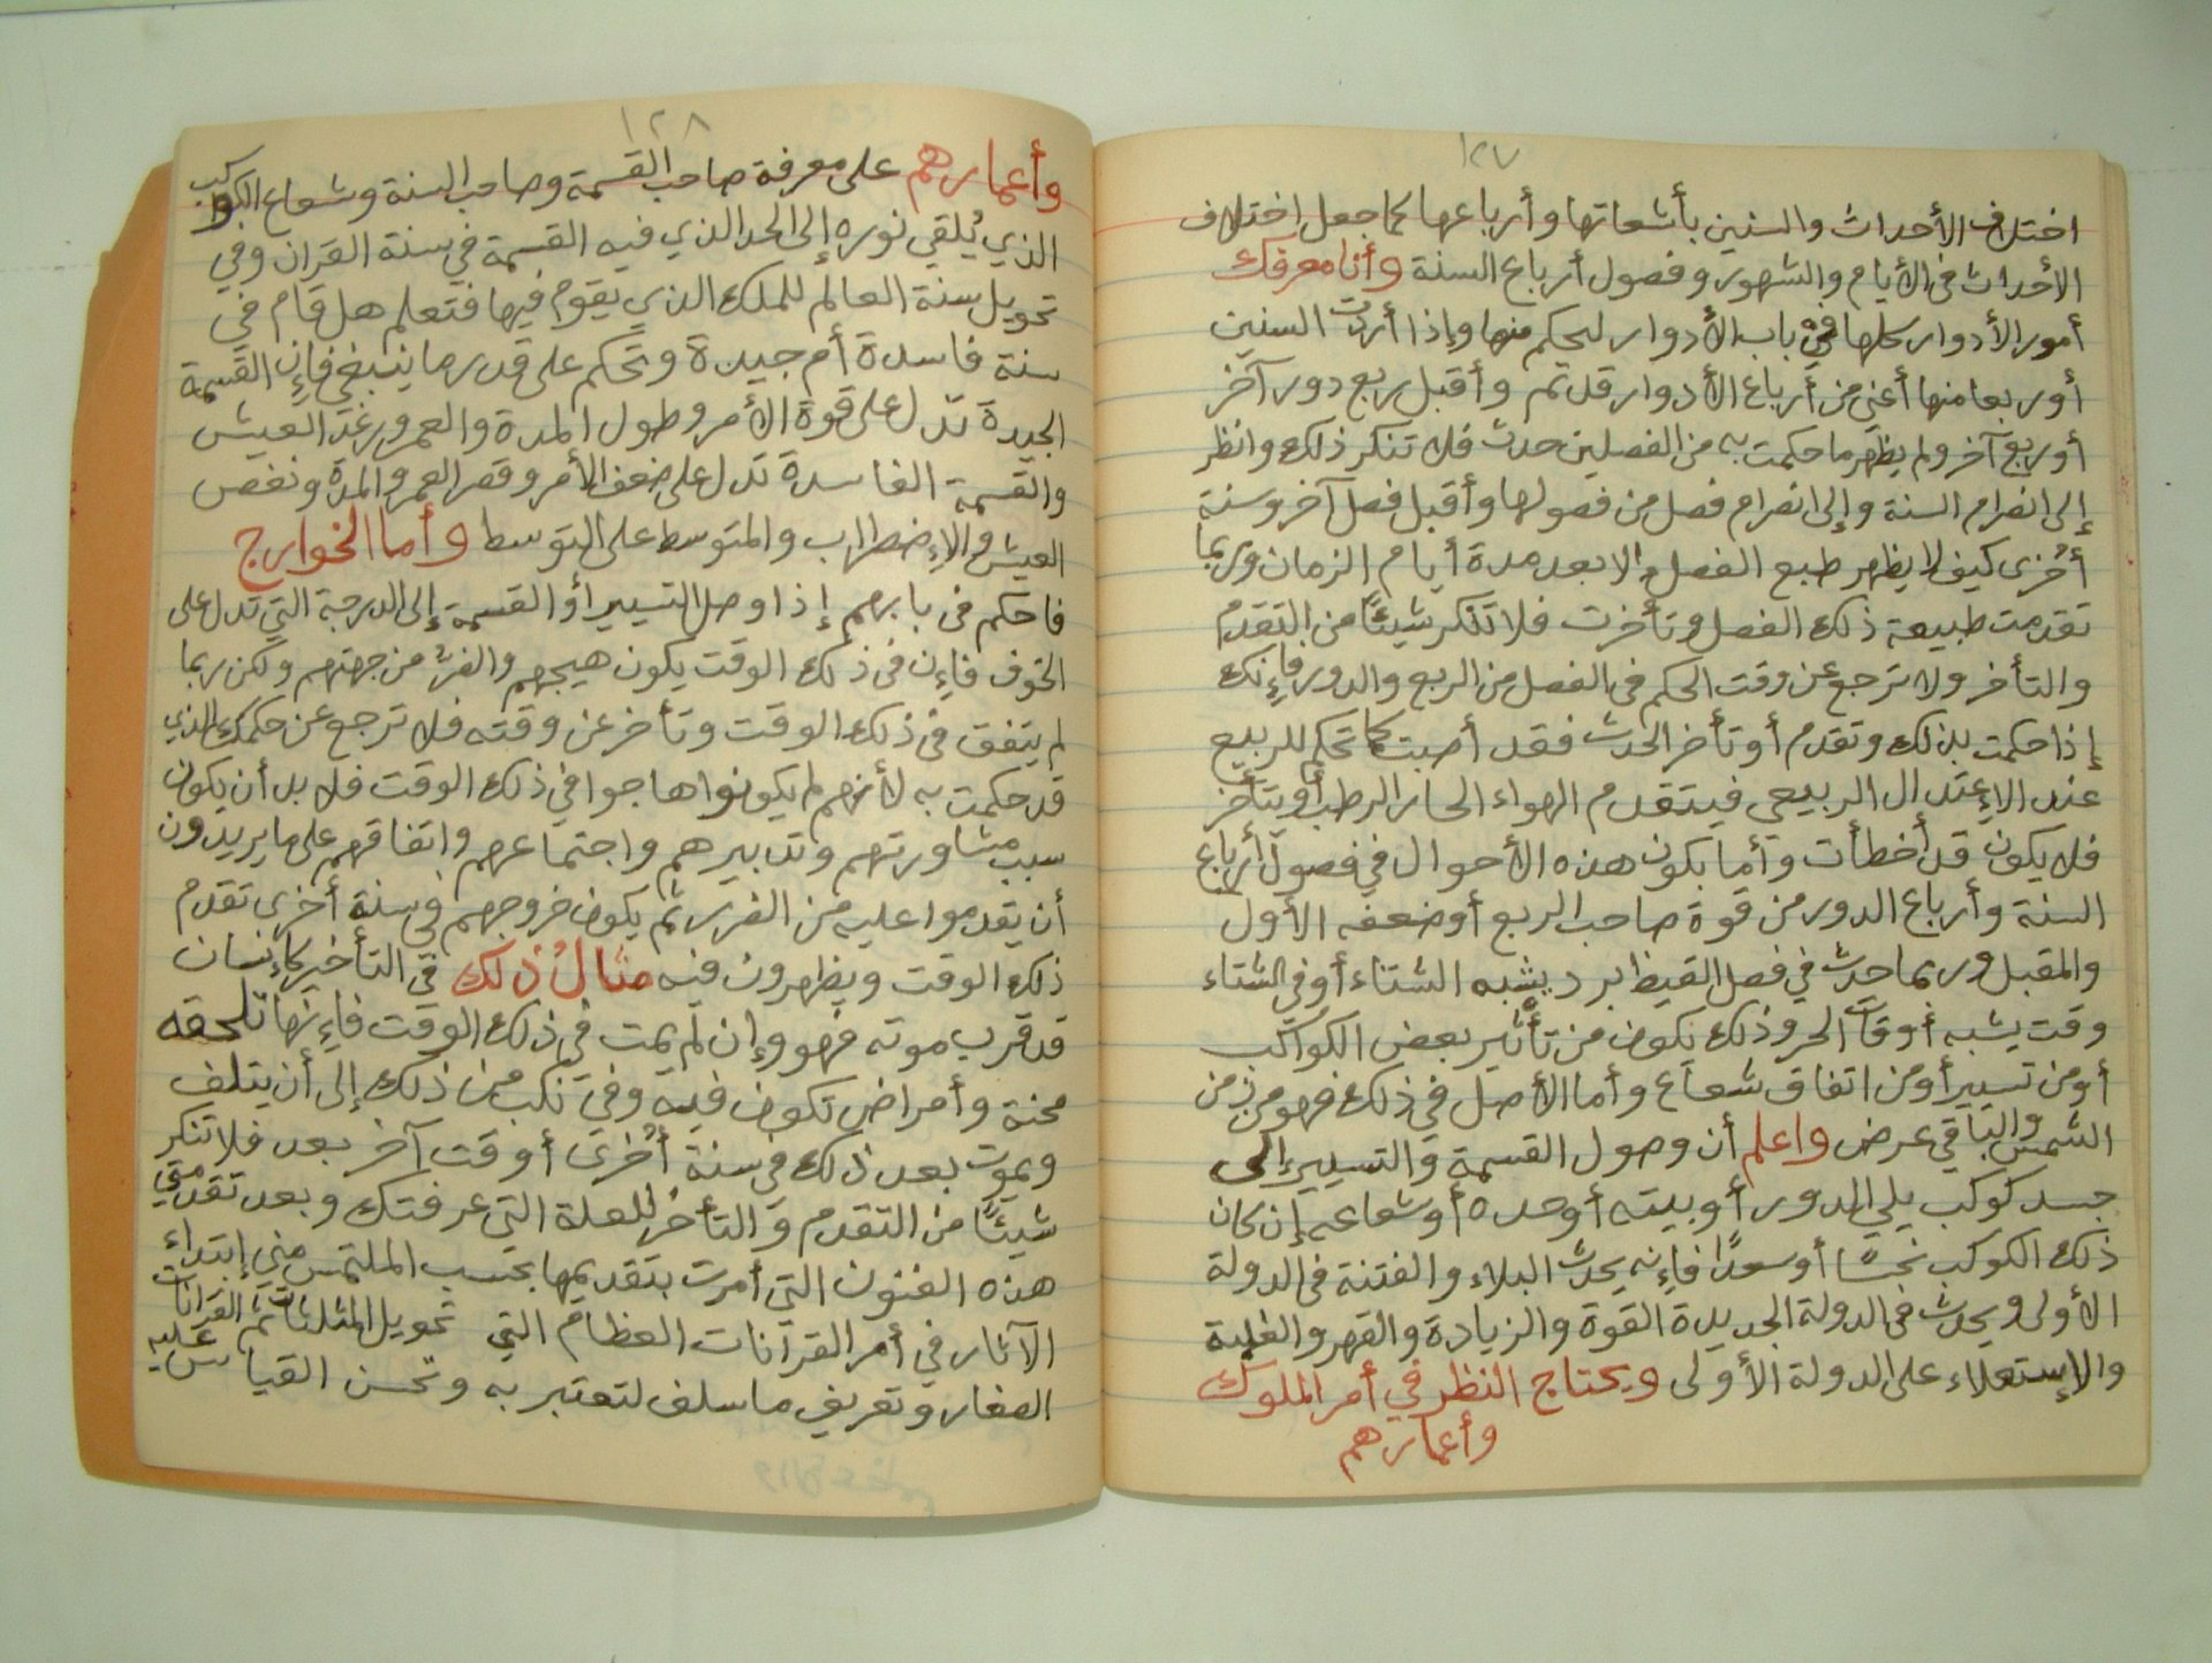 ١٢٧
اختلاف الأحداث والسنين بأشعاتها وأرباعها كما جعل اختلاف
الأحداث في الأيام والشهور وفصول أرباع السنة وأنا معرفك
أمور الأدوار كلها في باب الأدوار لحكم منها وإذا أردت السنين
أو ربعا منها أعني من أرباع الأدوار قد تم وأقبل ربع دور آخر
أو ربع آخر ولم يظهر ما حكمت به من الفصلين حدث فلا تنكر ذلك وانظر
إلى انصرام السنة وإلى انصرام فصل من فصولها وأقبل فصل آخر وسنة
أخرى كيف لا يظهر طبع الفصل إلا بعد مدة أيام الزمان وربما
تقدمت طبيعة ذلك الفصل وتأخرت فلا تنكر شيئًا من التقدم
والتأخر ولا ترجع عن وقت الحكم في الفصل من الربع والدور فإنك
إذا حكمت بذلك وتقدم أو تأخر الحدث فقد أصبت كما تحكم للربيع
عند الإعتدال الربيعي فيتقدم الهواء الحار الرطب أو يتأخر
فلا يكون قد أخطأت وأما يكون هذه الأحوال في فصول أرباع
السنة وأرباع الدور من قوة صاحب الربع أو ضعفه الأول
والمقبل وربما حدث في فصل القيظ برد يشبه الشتاء أو في الشتاء
وقت يشبه أوقات الحر وذلك تكون من تأثير بعض الكواكب
أو من تسيير أو من اتفاق شعاع وأما الأصل في ذلك فهو من
الشمس والباقي عرض واعلم أن وصول القسمة والتسيير إلى
جسد كوكب يلي الدور أو بيته أو حده أو شعاعه إن كان
ذلك الكوكب نحسًا أو سعدًا فإنه يحدث البلاء والفتنة في الدولة
الأولى ويحدث في الدولة الجديدة القوة والزيادة والقهر والغلبة
والإستعلاء على الدولة الأولى ويحتاج النظر في أمر الملوك
وأعمارهم
١٢٨
وأعمارهم على معرفة صاحب القسمة وصاحب السنة وشعاع الكواكب
الذي يُلقي نوره إلى الحد الذي فيه القسمة في سنة القران وفي
تحويل سنة العالم للملك الذي يقوم فيها فتعلم هل قام في
سنة فاسدة أم جيدة وتحكم على قدر ما ينبغي فإن القسمة
الجيدة تدل على قوة الأمر وطول المدة والعمر ورغد العيش
والقسمة الفاسدة تدل على ضعف الأمر وقصر العمر والمدة ونغص
العيش والإضطراب والمتوسط على التوسط وأما الخوارج
فاحكم في بابهم إذا وصل التسيير أو القسمة إلى الدرجة التي تدل على
الخوف فإن في ذلك الوقت يكون هيجهم والفزع من جهتهم ولكن ربما
لم يتفق في ذلك الوقت وتأخر عن وقته فلا ترجع عن حكمك الذي
قد حكمت به لأنهم لم يكونوا هاجوا في ذلك الوقت فلا بد أن يكون
سبب مشاورتهم وتدبيرهم واجتماعهم واتفاقهم على ما يريدون
أن يقدموا عليه من الضرر ثم يكون خروجهم في سنة أخرى تقدم
ذلك الوقت ويظهرون فيه مثالُ ذلك في التأخير كإنسان
قد قرب موته فهو وإن لم يمت في ذلك الوقت فإنها تلحقه
محنة وأمراض تكون فيه وفي نكب من ذلك إلى أن يتلف
ويموت بعد ذلك في سنة أخرى أو وقت آخر بعد فلا تنكر
شيئًا من التقدم والتأخر للعلة التي عرفتك وبعد تقدمتي
هذه الفنون التي أمرت بتقديمها بحسب الملتمس مني إبتداء
الآثار في أمر القرانات العظام التي تحويل المثلثات ثم القرانات
الصغار وتعريف ما سلف لتعتبر به وتحسن القياس عليه